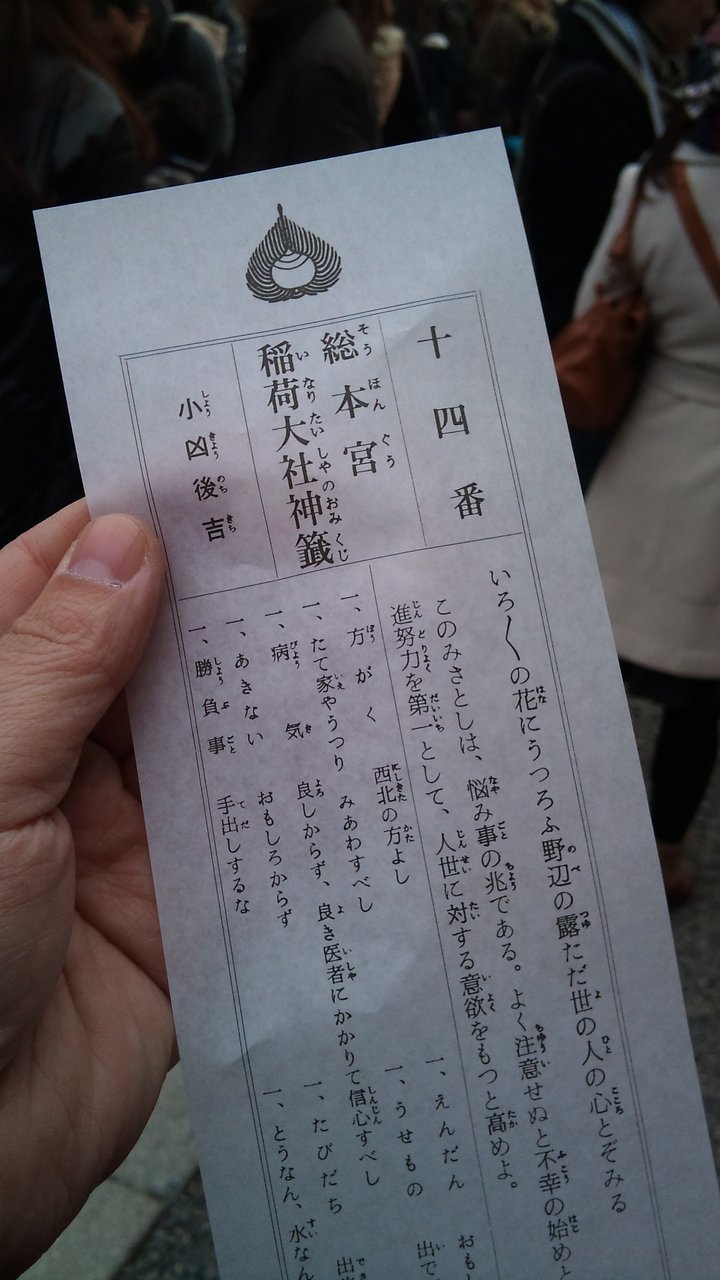 十四番
総本宮
稲荷大社神籤
小凶後吉
いろ〱の花にうつろふ野辺の露ただ世の人の心とぞみる
このみさとしは、悩み事の兆である。よく注意せぬと不幸の始めと
進努力を第一として、人世に対する意欲をもつと高めよ。
一、方がく 西北の方よし
一、たて家やうつり みあわすべし
一、病気 良しからず、良き医者にかかりて信心すべし
一、あきない おもしろからず
一、勝負事 手出しするな
一、えんだん おも
一、うせもの 出で
一、たびだち
一、とうなん、水なん